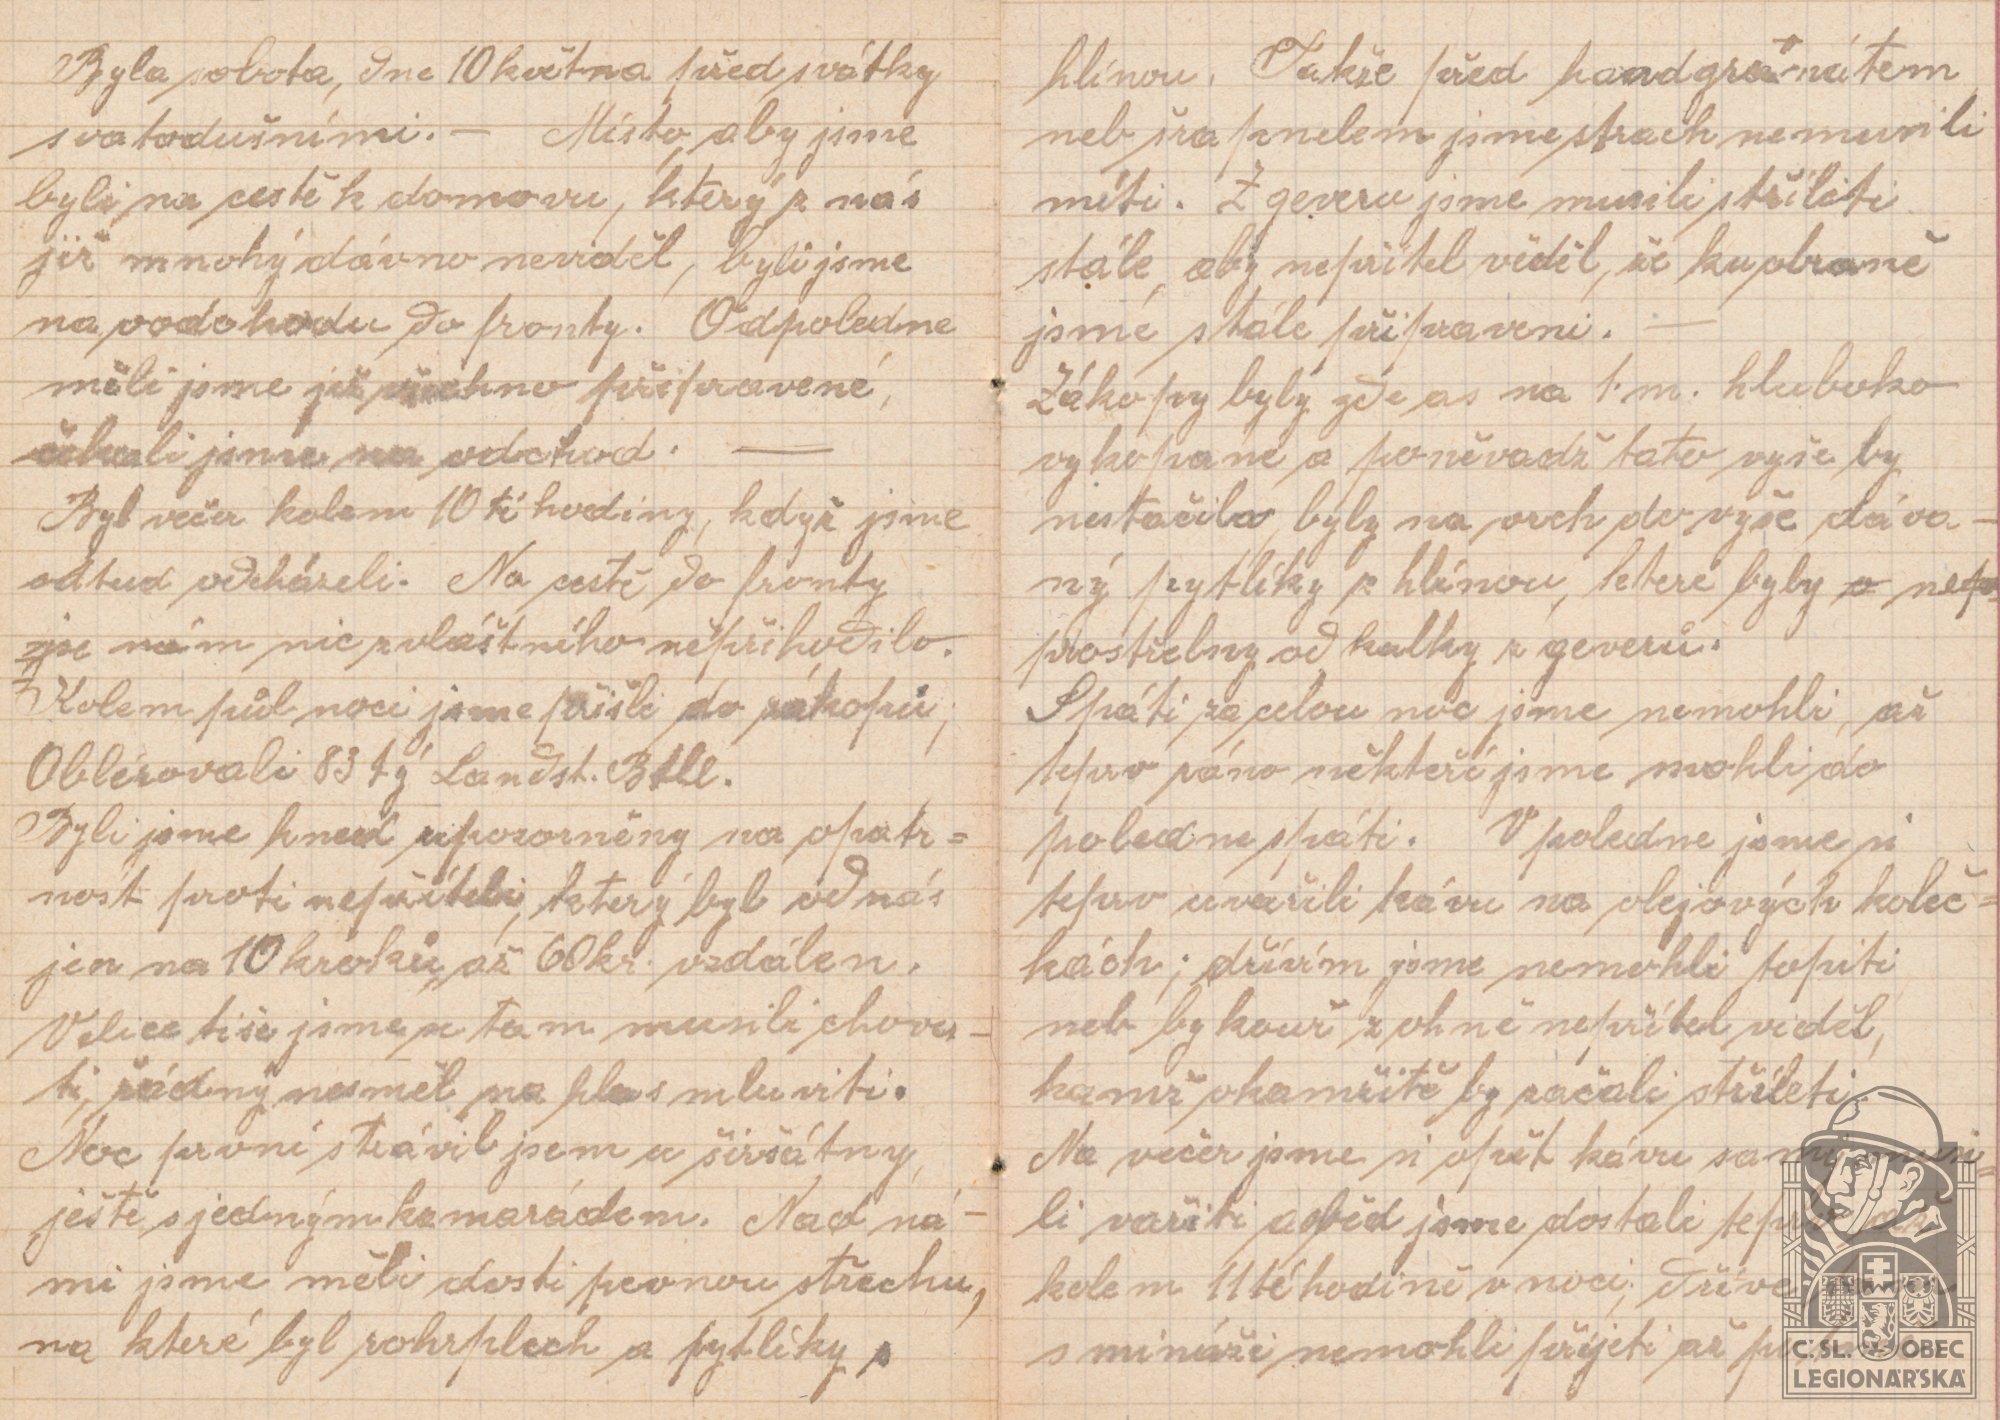 Byla sobota, dne 10 května před svátky
svatodušními. — Místo, aby jsme
byli na cestě k domovu, který z nás
již mnohý dávno neviděl, byli jsme
na podchodu do fronty. Odpoledne
měli jsme již všechno připravené,
čekali jsme na odchod. —
Byl večer kolem 10 tí hodiny, když jsme
odtud odcházeli. Na cestě do fronty
se nám nic zvláštního nepřihodilo.
Kolem půl noci jsme přišli do zákopů,
Oblérovali 83 tý Landst. Btll.
Byli jsme hned upozorněny na opatr=
nost proti nepříteli, který byl od nás
jen na 10 kroků, až 60 kr. vzdálen.
Velice tiše jsme se tam musili chova-
ti, žádný nesměl na hlas mluviti.
Noc první strávil jsem u širšátny,
ještě s jedným kamarádem. Nad ná-
mi jsme měli dosti pevnou střechu,
na které byl rohrplech a pytlíky s
hlínou. Takže před handgranátem
neb šrapnelem jsme strach nemusili
míti. Z geveru jsme musili stříleti
stále, aby nepřítel věděl, že ku obraně
jsmé stále připraveni. —
Zákopy byly zde as na 1. m. hluboko
vykopané a poněvadž tato vyše by
nestačila, byly na vrch do vyše dáva-
ný pytlíky z hlínou, ktere byly nepo-
prostřelny od kulky z geverů.
Spáti za celou noc jsme nemohli, až
teprv ráno někteří jsme mohli do
poledne spáti. V poledne jsme si
teprv uvařili kávu na olejových koleč=
kách; dřívím jsme nemohli topiti
neb by kouř z ohně nepřítel viděl,
kamž okamžitě by začali stříleti.
Na večer jsme si opět kávu sami musi=
li vařiti a oběd jsme dostali teprv až
kolem 11 té hodině v noci; dříve
s mináži nemohli přijeti až po
Č. SL. OBEC
LEGIONÁŘSKÁ